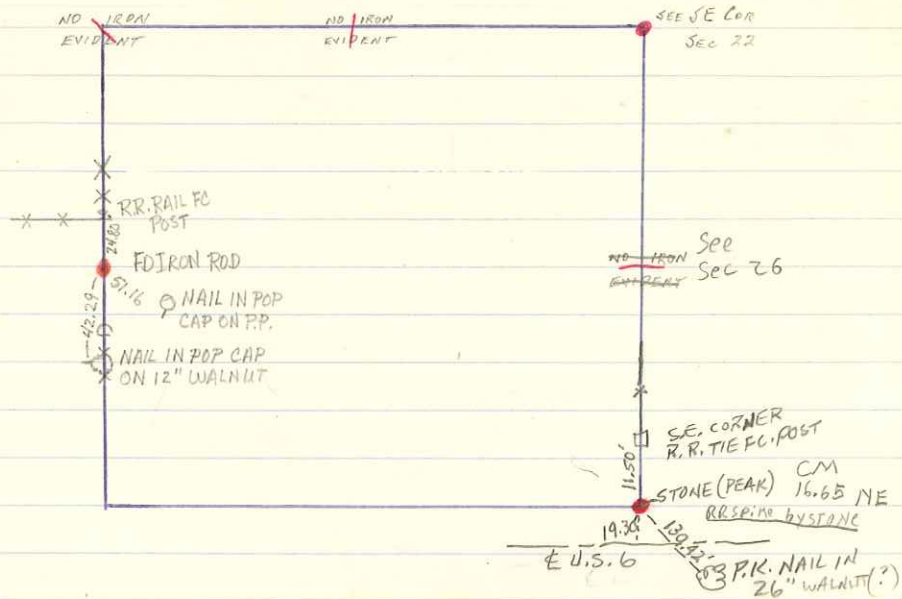 NO IRON
EVIDENT
NO IRON
EVIDENT
SEE SE COR
SEC 22
R.R. RAIL FC
POST
24.80'
FD IRON ROD
51.16
42.29
NAIL IN POP
CAP ON P.P.
NAIL IN POP CAP
ON 12" WALNUT
NO IRON
EVIDENT
See
Sec 26
S.E. CORNER
R.R. TIE FC. POST
11.50'
STONE (PEAK)
CM
16.65 NE
RR Spike by STONE
19.30
139.42'
℄ U.S. 6
P.K. NAIL IN
26" WALNUT (?)